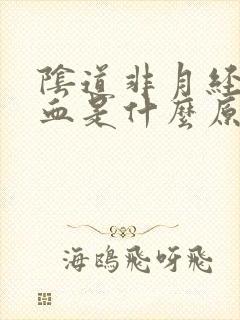 陰道非月経
血是什麼原
海鴎飛呀飛